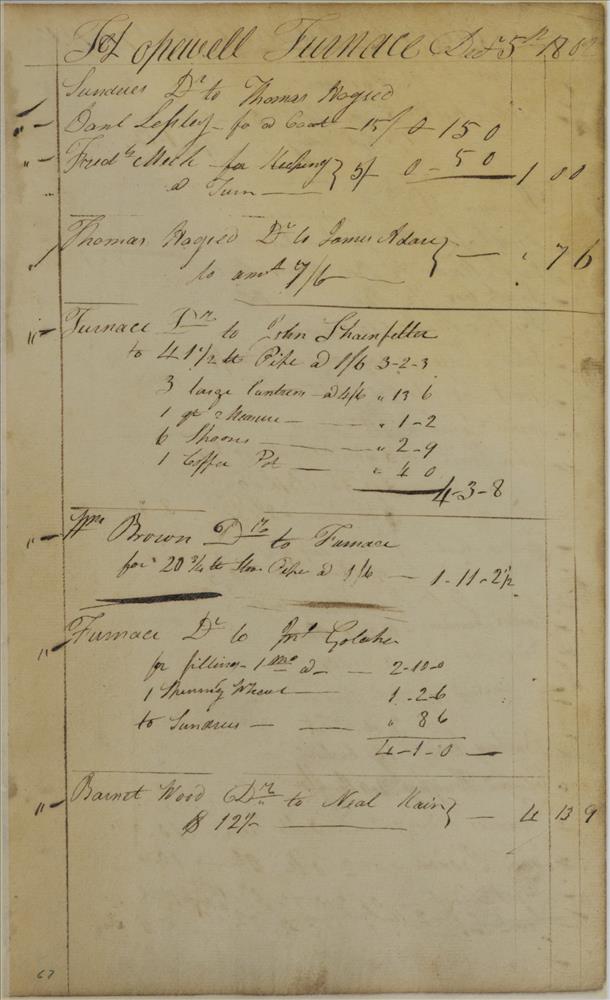 Hopewell Furnace Decr 5th 180
Sundries Dr to Thomas Hagied
Danl Lepley - for a Coat - 15/ 0 - 15 0
Fredk Meek for Keeping } 5/ 0 - 5 0 1 00
a Turn
Thomas Hagied Dr to James Adare }
to amt 7/6 " 7 6
Furnace Dr to John Shainfelter
to 41 1/2 lb Pipe a 1/6 3-2-3
3 large Lantrens a 4/6 " 13 6
1 qt Measure " 1-2
6 Spoons " 2-9
1 Coffee Pot " 4 0
4-3-8
Wm Brown Dr to Furnace
for 20 3/4 lb Stove Pipe a 1/6 - 1-11-2 1/2
Furnace Dr to Jno
for filling 1 Mo a 2-10-0
1 Spinning Wheel 1-2-6
to Sundries " 8 6
4-1-0
Barnet Wood Dr to Neal Kain }
$ 12/ 4 13 9
67